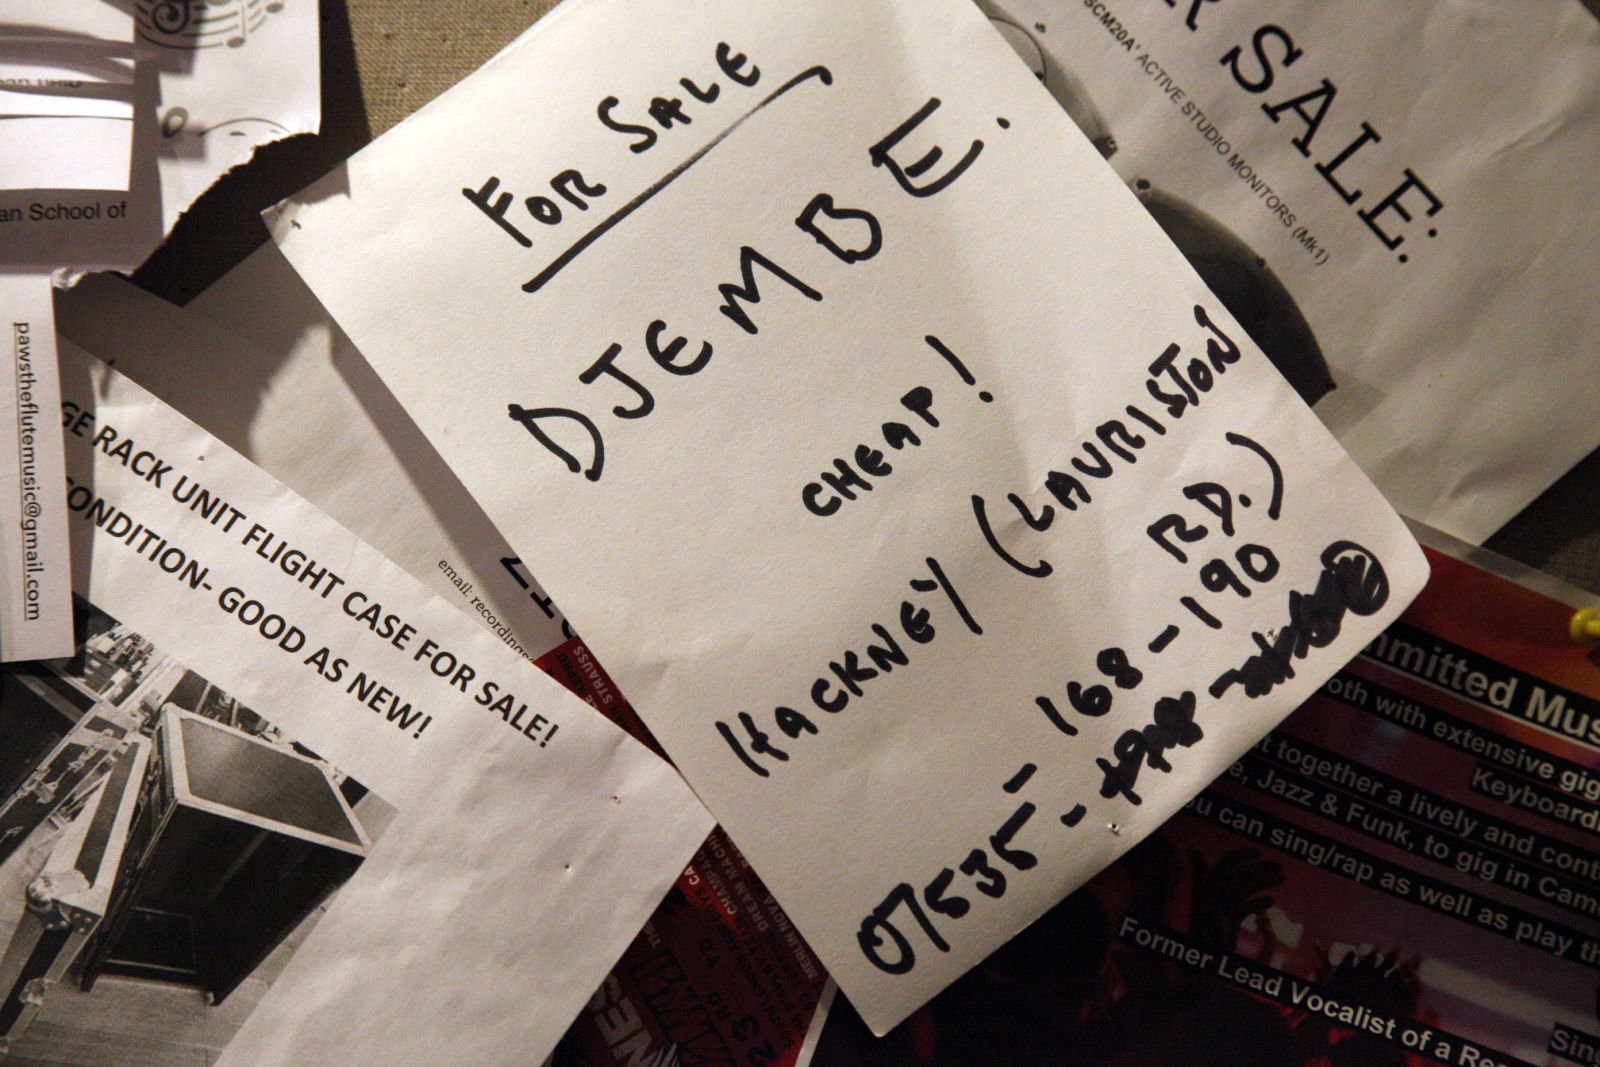 For Sale
DJEMBE.
CHEAP!
HACKNEY (LAURISTON
RD.)
07535 - 168 - 190
R SALE:
SCM20A' ACTIVE STUDIO MONITORS (Mk1)
an School of
pawstheflutemusic@gmail.com
GE RACK UNIT FLIGHT CASE FOR SALE!
CONDITION- GOOD AS NEW!
email: recordings
STRAUSS
mmitted Mus
oth with extensive gig
Keyboard
t together a lively and cont
e, Jazz & Funk, to gig in Cam
u can sing/rap as well as play th
Former Lead Vocalist of a Re
Sin
23 RD TO
NESS